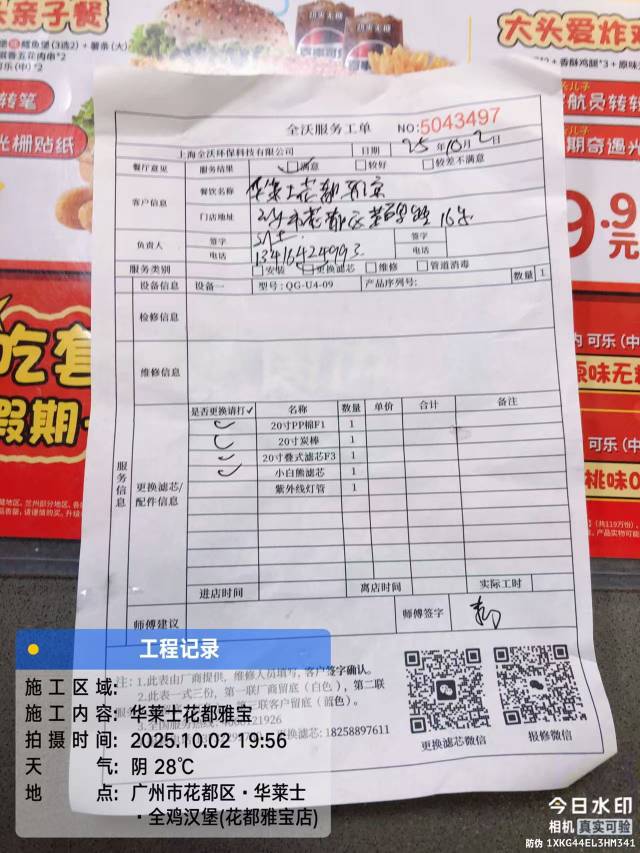 头亲子餐
大头爱炸鸡
转笔
光栅贴纸
航员转转
期奇遇光
9.9
元
内 可乐(中
原味无
可乐(中
桃味0
吃套
假期
全沃服务工单
NO:5043497
上海全沃环保科技有限公司
日期
25年10月2日
餐厅意见
服务结果
满意
较好
较差不满意
客户信息
餐饮名称
华莱士花都雅宝
门店地址
16号
负责人
签字
签字
电话
13416424993
电话
服务类别
安装
更换滤芯
维修
管道消毒
设备信息
设备一
型号:QG-U4-09
产品序列号:
数量
1
检修信息
维修信息
服务信息
更换滤芯/配件信息
是否更换请打✓
名称
数量
单价
合计
备注
20寸PP棉F1
1
20寸炭棒
1
20寸叠式滤芯F3
1
小白熊滤芯
1
紫外线灯管
1
进店时间
离店时间
实际工时
师傅建议
师傅签字
注:1.此表由厂商提供,维修人员填写,客户签字确认。
2.此表一式三份,第一联厂商留底(白色),第二联
联客户留底(蓝色)。
更换滤芯:18258897611
更换滤芯微信
报修微信
工程记录
施工区域:
施工内容:华莱士花都雅宝
拍摄时间:2025.10.02 19:56
天气:阴 28℃
地点:广州市花都区·华莱士
·全鸡汉堡(花都雅宝店)
今日水印
相机 真实可验
防伪 1XKG44EL3HM341